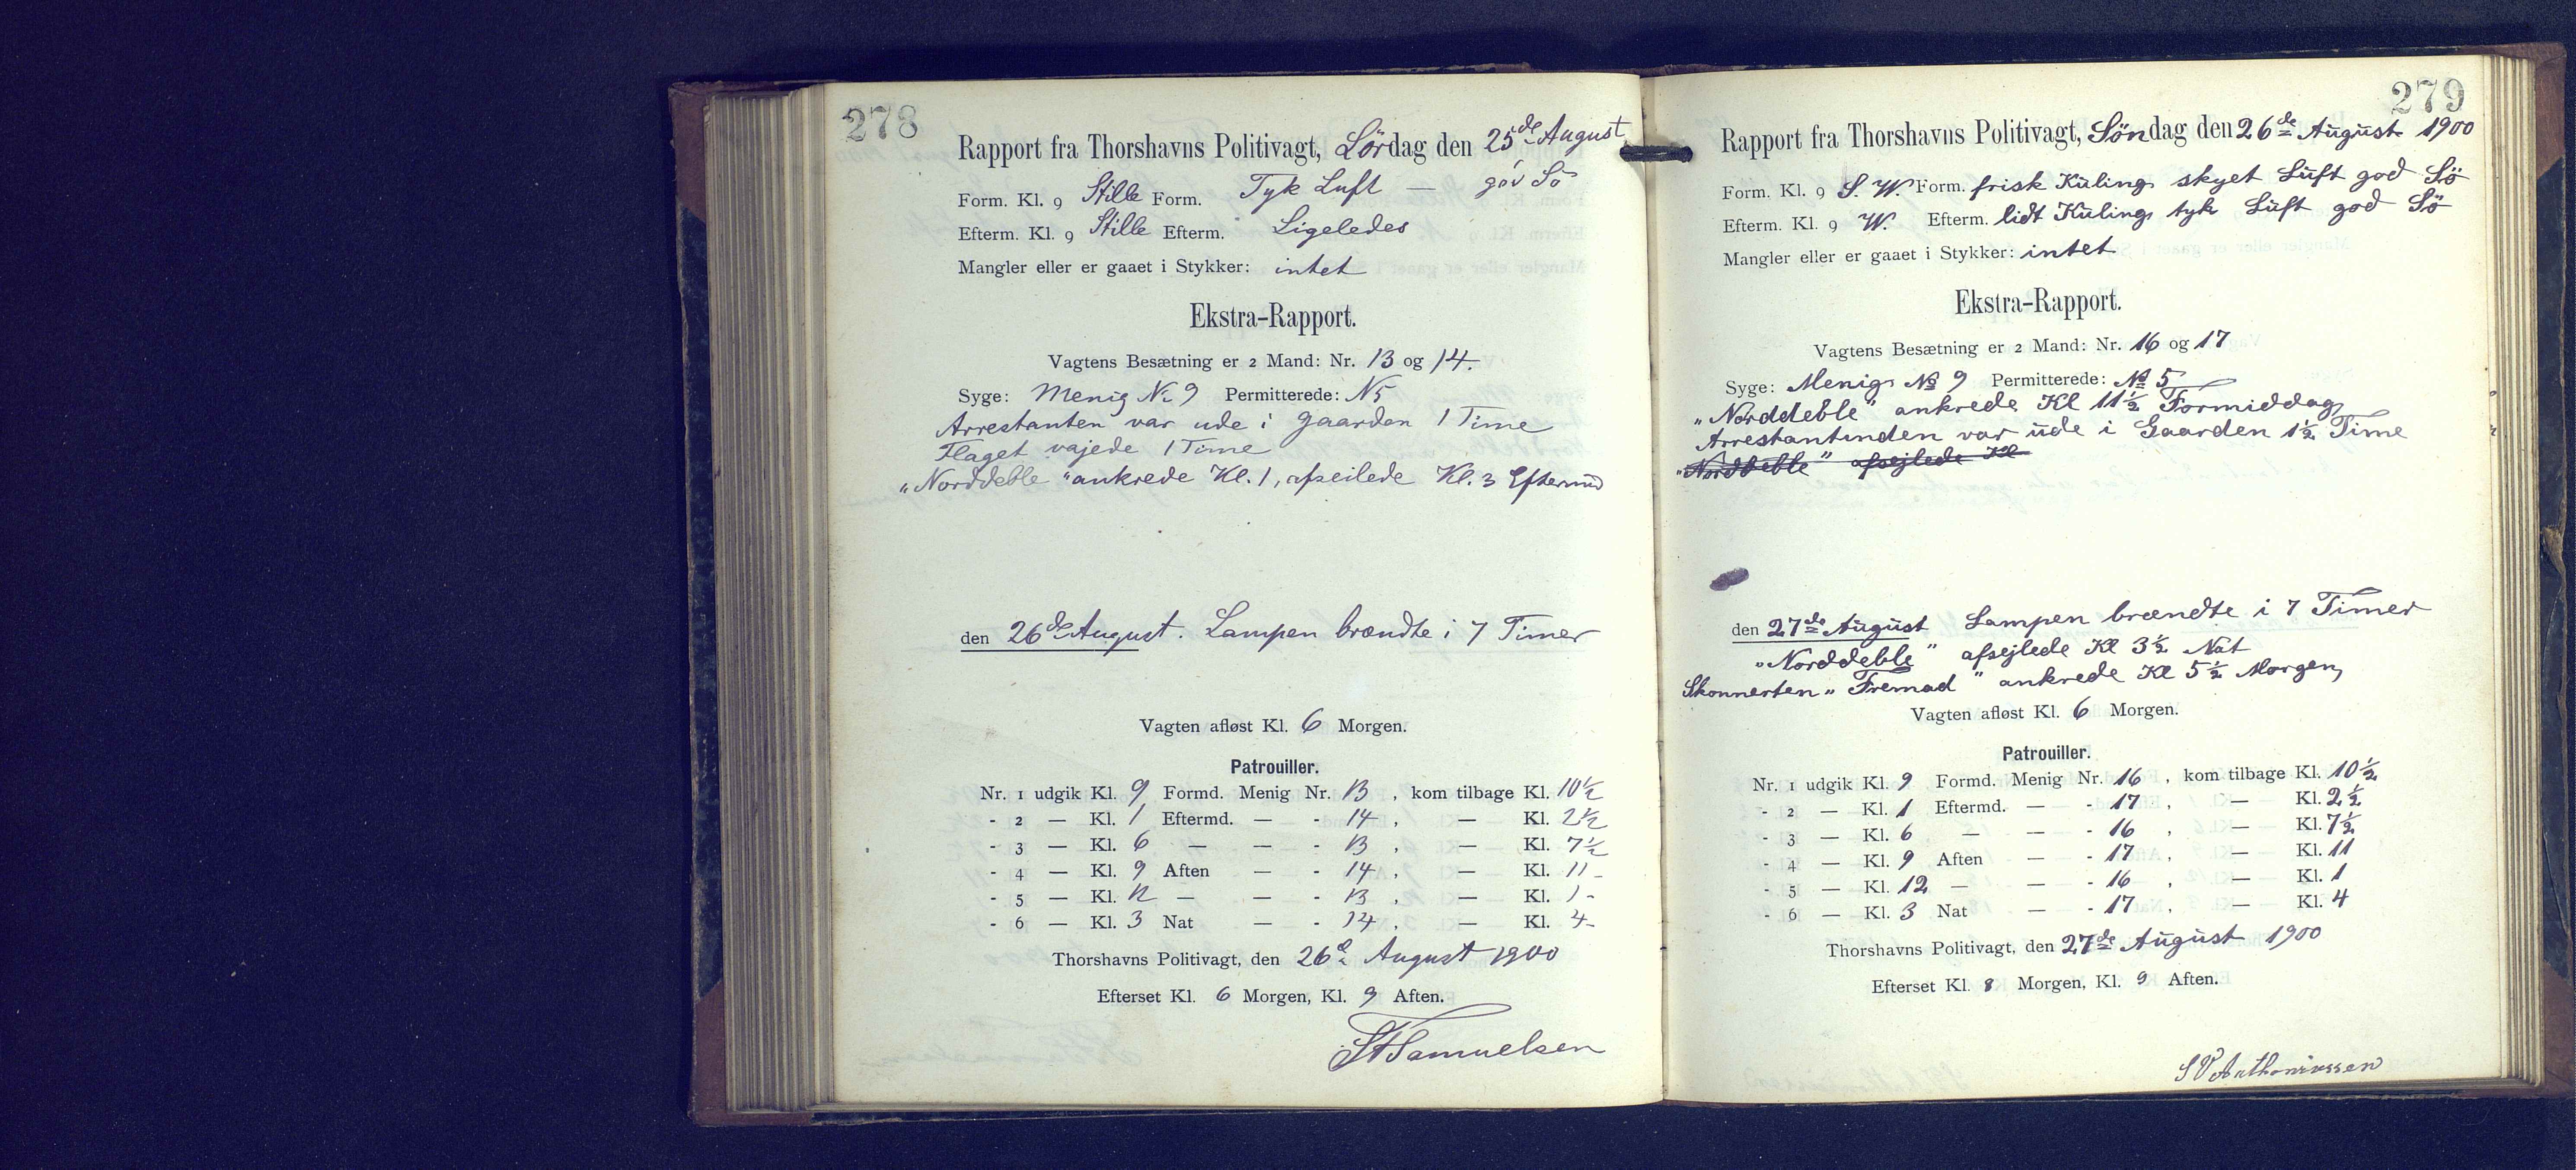 278
Rapport fra Thorshavns Politivagt, Lördag den 25de August
Form. Kl. 9 Stille Form. Tyk Luft — góv Sö
Efterm. Kl. 9 Stille Efterm. Ligeledes
Mangler eller er gaaet i Stykker: intet
Ekstra-Rapport.
Vagtens Besætning er 2 Mand: Nr. 13 og 14.
Syge: Menig Nr 9 Permitterede: N 5
Arrestanten var ude i gaarden 1 Time
Flaget vajede 1 Time
„Norddeble" ankrede Kl. 1, afseilede Kl. 3 Eftermd
den 26de August. Lampen brændte i 7 Timer
Vagten afløst Kl. 6 Morgen.
Patrouiller.
Nr. 1 udgik Kl. 9 Formd. Menig Nr. 13, kom tilbage Kl. 10½
- 2 — Kl. 1 Eftermd. — - 14, — Kl. 2½
- 3 — Kl. 6 — — - 13, — Kl. 7½
- 4 — Kl. 9 Aften — - 14, — Kl. 11 -
- 5 — Kl. 12 — — - 13, — Kl. 1 -
- 6 — Kl. 3 Nat — - 14, — Kl. 4 -
Thorshavns Politivagt, den 26de August 1900
Efterset Kl. 6 Morgen, Kl. 9 Aften.
Samuelsen
279
Rapport fra Thorshavns Politivagt, Söndag den 26de August 1900
Form. Kl. 9 S. W. Form. frisk Kuling skyet Luft god Sö
Efterm. Kl. 9 W. Efterm. lidt Kuling tyk Luft god Sö
Mangler eller er gaaet i Stykker: intet
Ekstra-Rapport.
Vagtens Besætning er 2 Mand: Nr. 16 og 17
Syge: Menig No 9 Permitterede: No 5
„Norddeble" ankrede Kl 11½ Formiddag
Arrestantinden var ude i Gaarden 1½ Time
„Norddeble" afsejlede Kl
den 27de August Lampen brændte i 7 Timer
„Norddeble" afsejlede Kl 3½ Nat
Skonnerten „Fremad" ankrede Kl 5½ Morgen,
Vagten afløst Kl. 6 Morgen.
Patrouiller.
Nr. 1 udgik Kl. 9 Formd. Menig Nr. 16, kom tilbage Kl. 10½
- 2 — Kl. 1 Eftermd. — - 17, — Kl. 2½
- 3 — Kl. 6 — — - 16, — Kl. 7½
- 4 — Kl. 9 Aften — - 17, — Kl. 11
- 5 — Kl. 12 — — - 16, — Kl. 1
- 6 — Kl. 3 Nat — - 17, — Kl. 4
Thorshavns Politivagt, den 27de August 1900
Efterset Kl. 8 Morgen, Kl. 9 Aften.
S V Anthoniussen